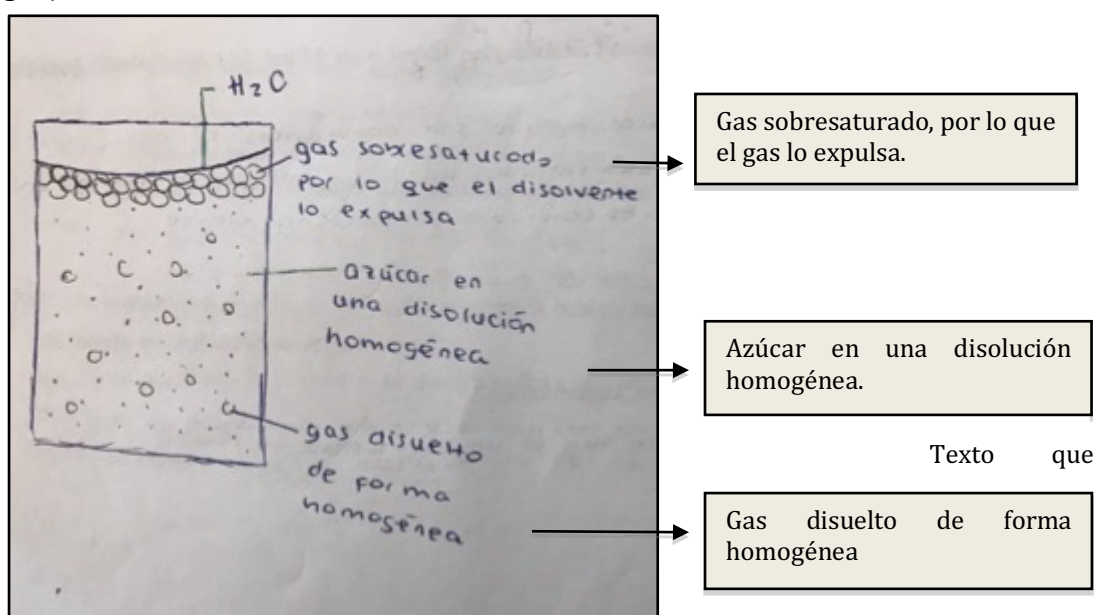 H₂O
gas sobresaturado
por lo que el disolvente
lo expulsa
azúcar en
una disolución
homogénea
gas disuelto
de forma
homogénea
Gas sobresaturado, por lo que
el gas lo expulsa.
Azúcar en una disolución
homogénea.
Texto que
Gas disuelto de forma
homogénea